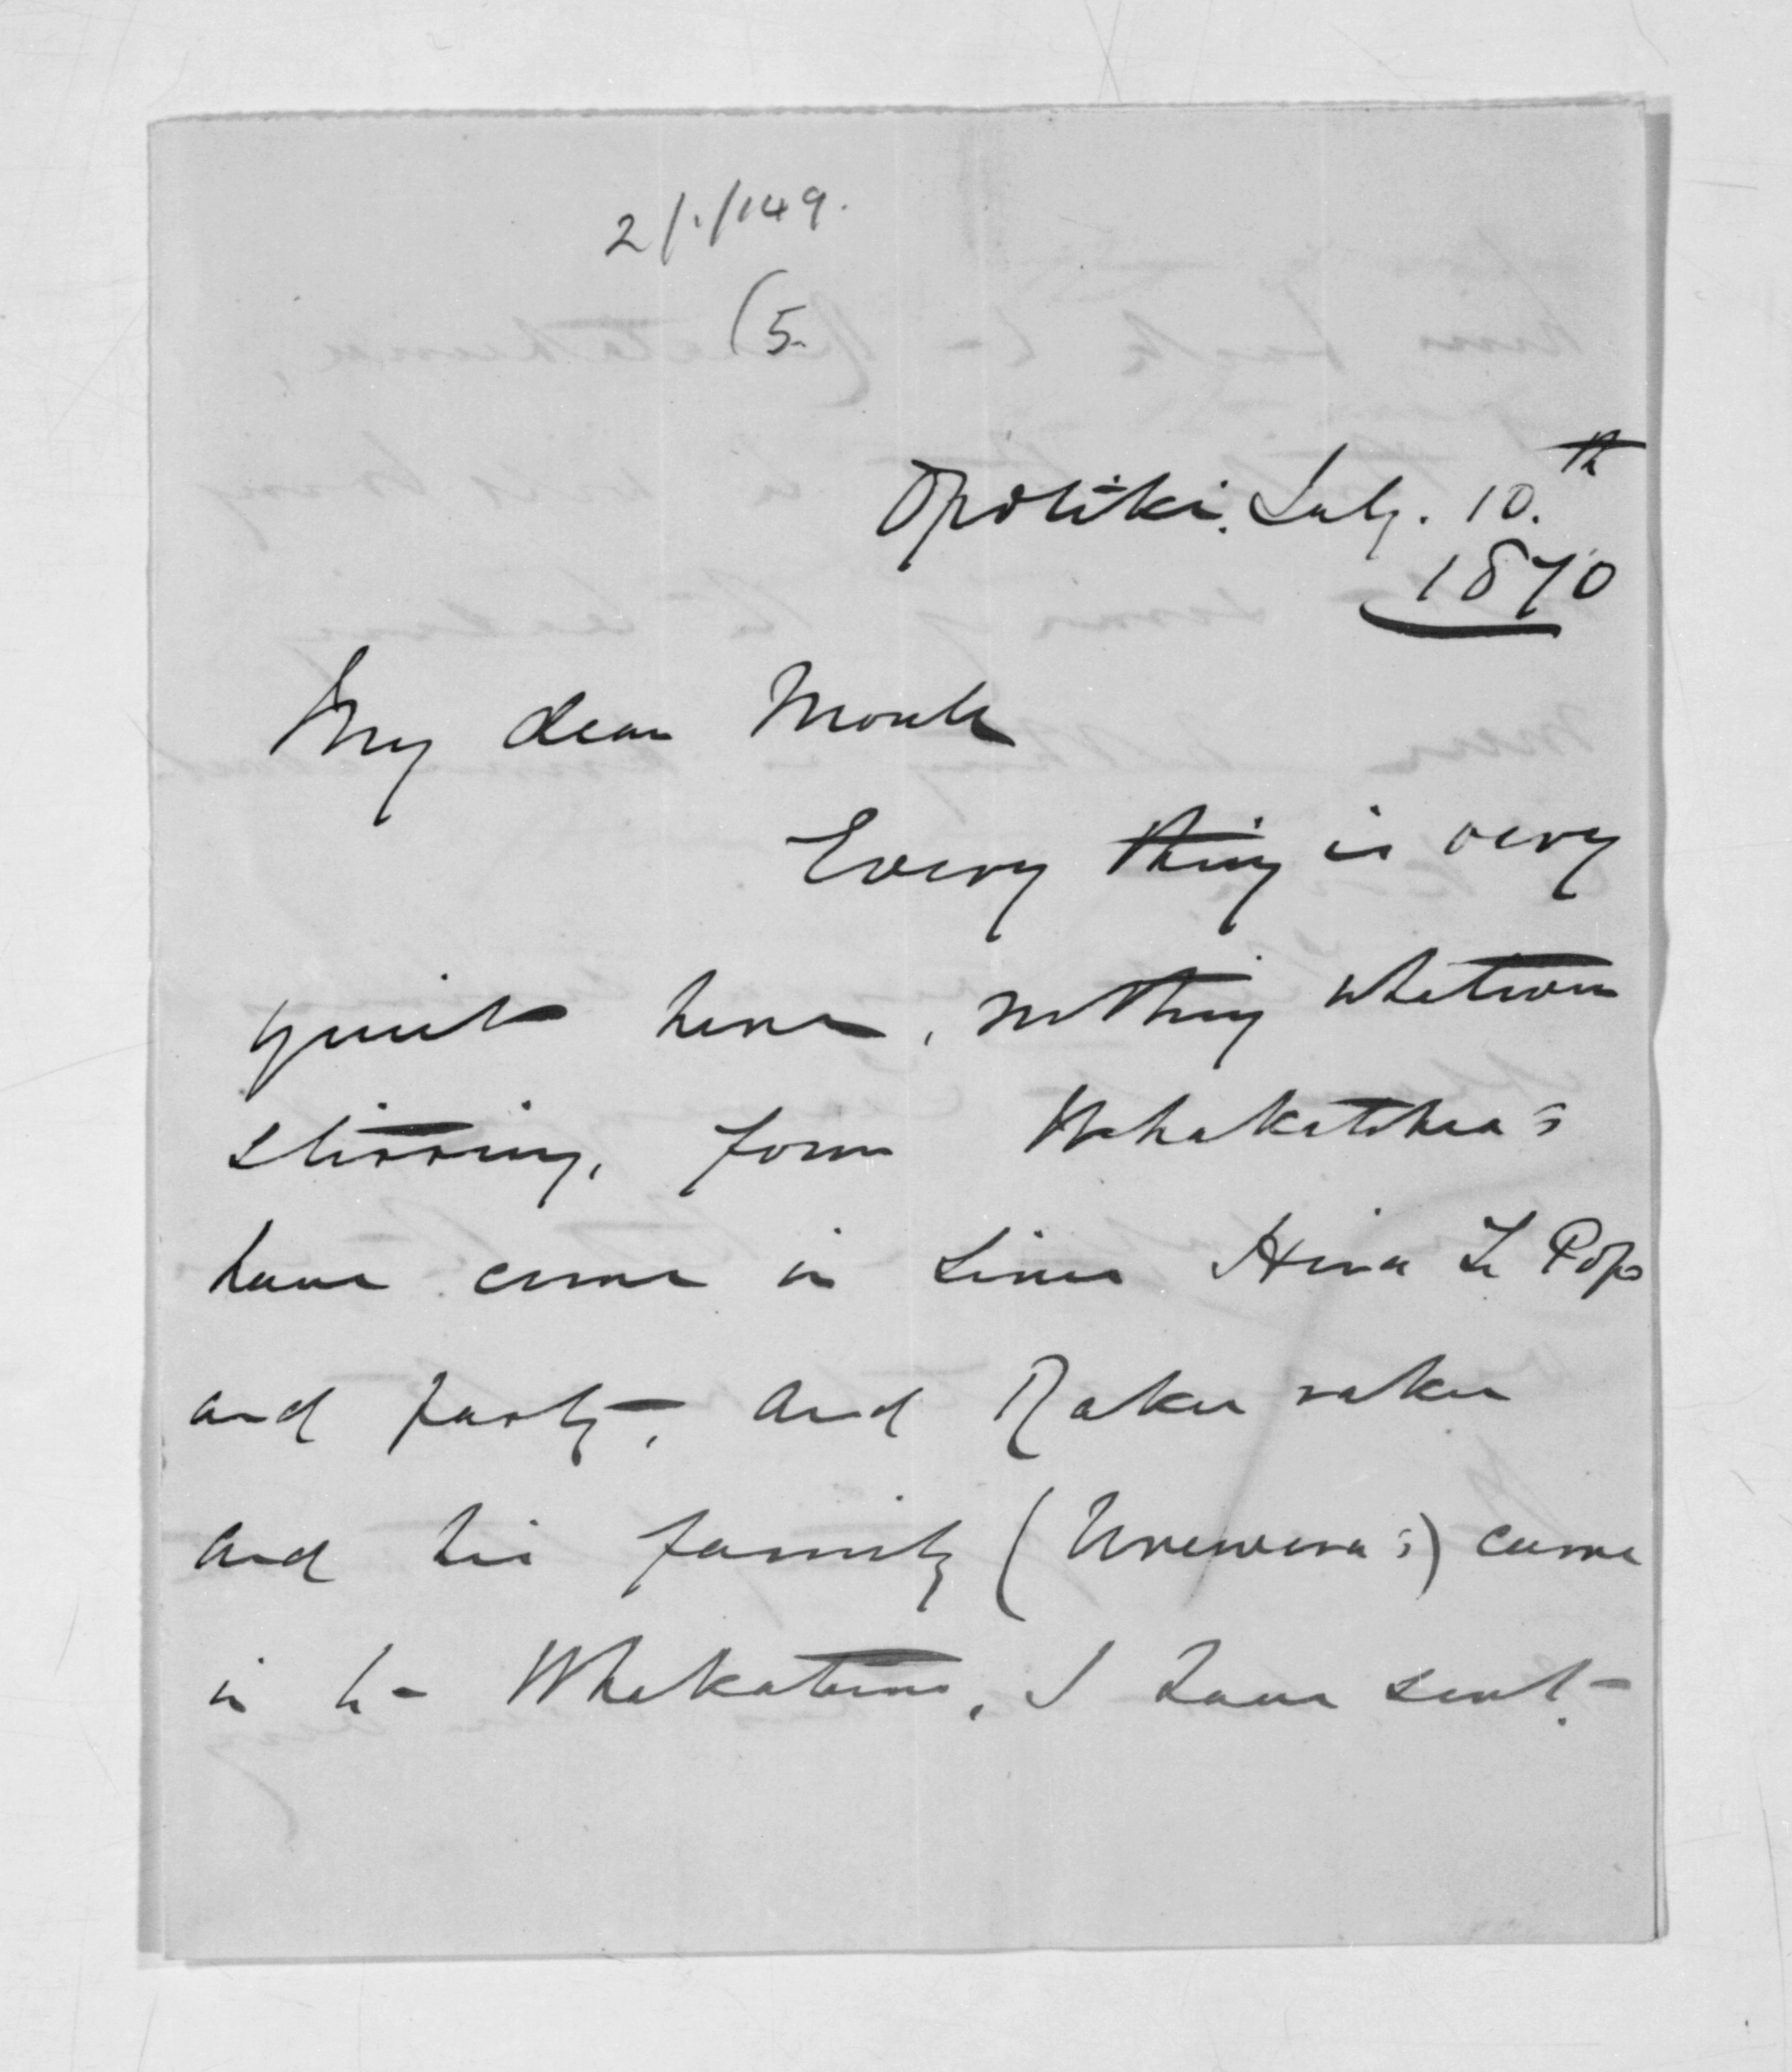 2/1/149.
(5.
Opotiki. July. 10.th
1870
My dear Monk
Every thing is very
quiet here, nothing whatever
stirring, four Whakatohea's
have come in since Hira Te Popo
and party, and Raku raku
and his family (Urewera's) came
in to Whakatane, I have sent